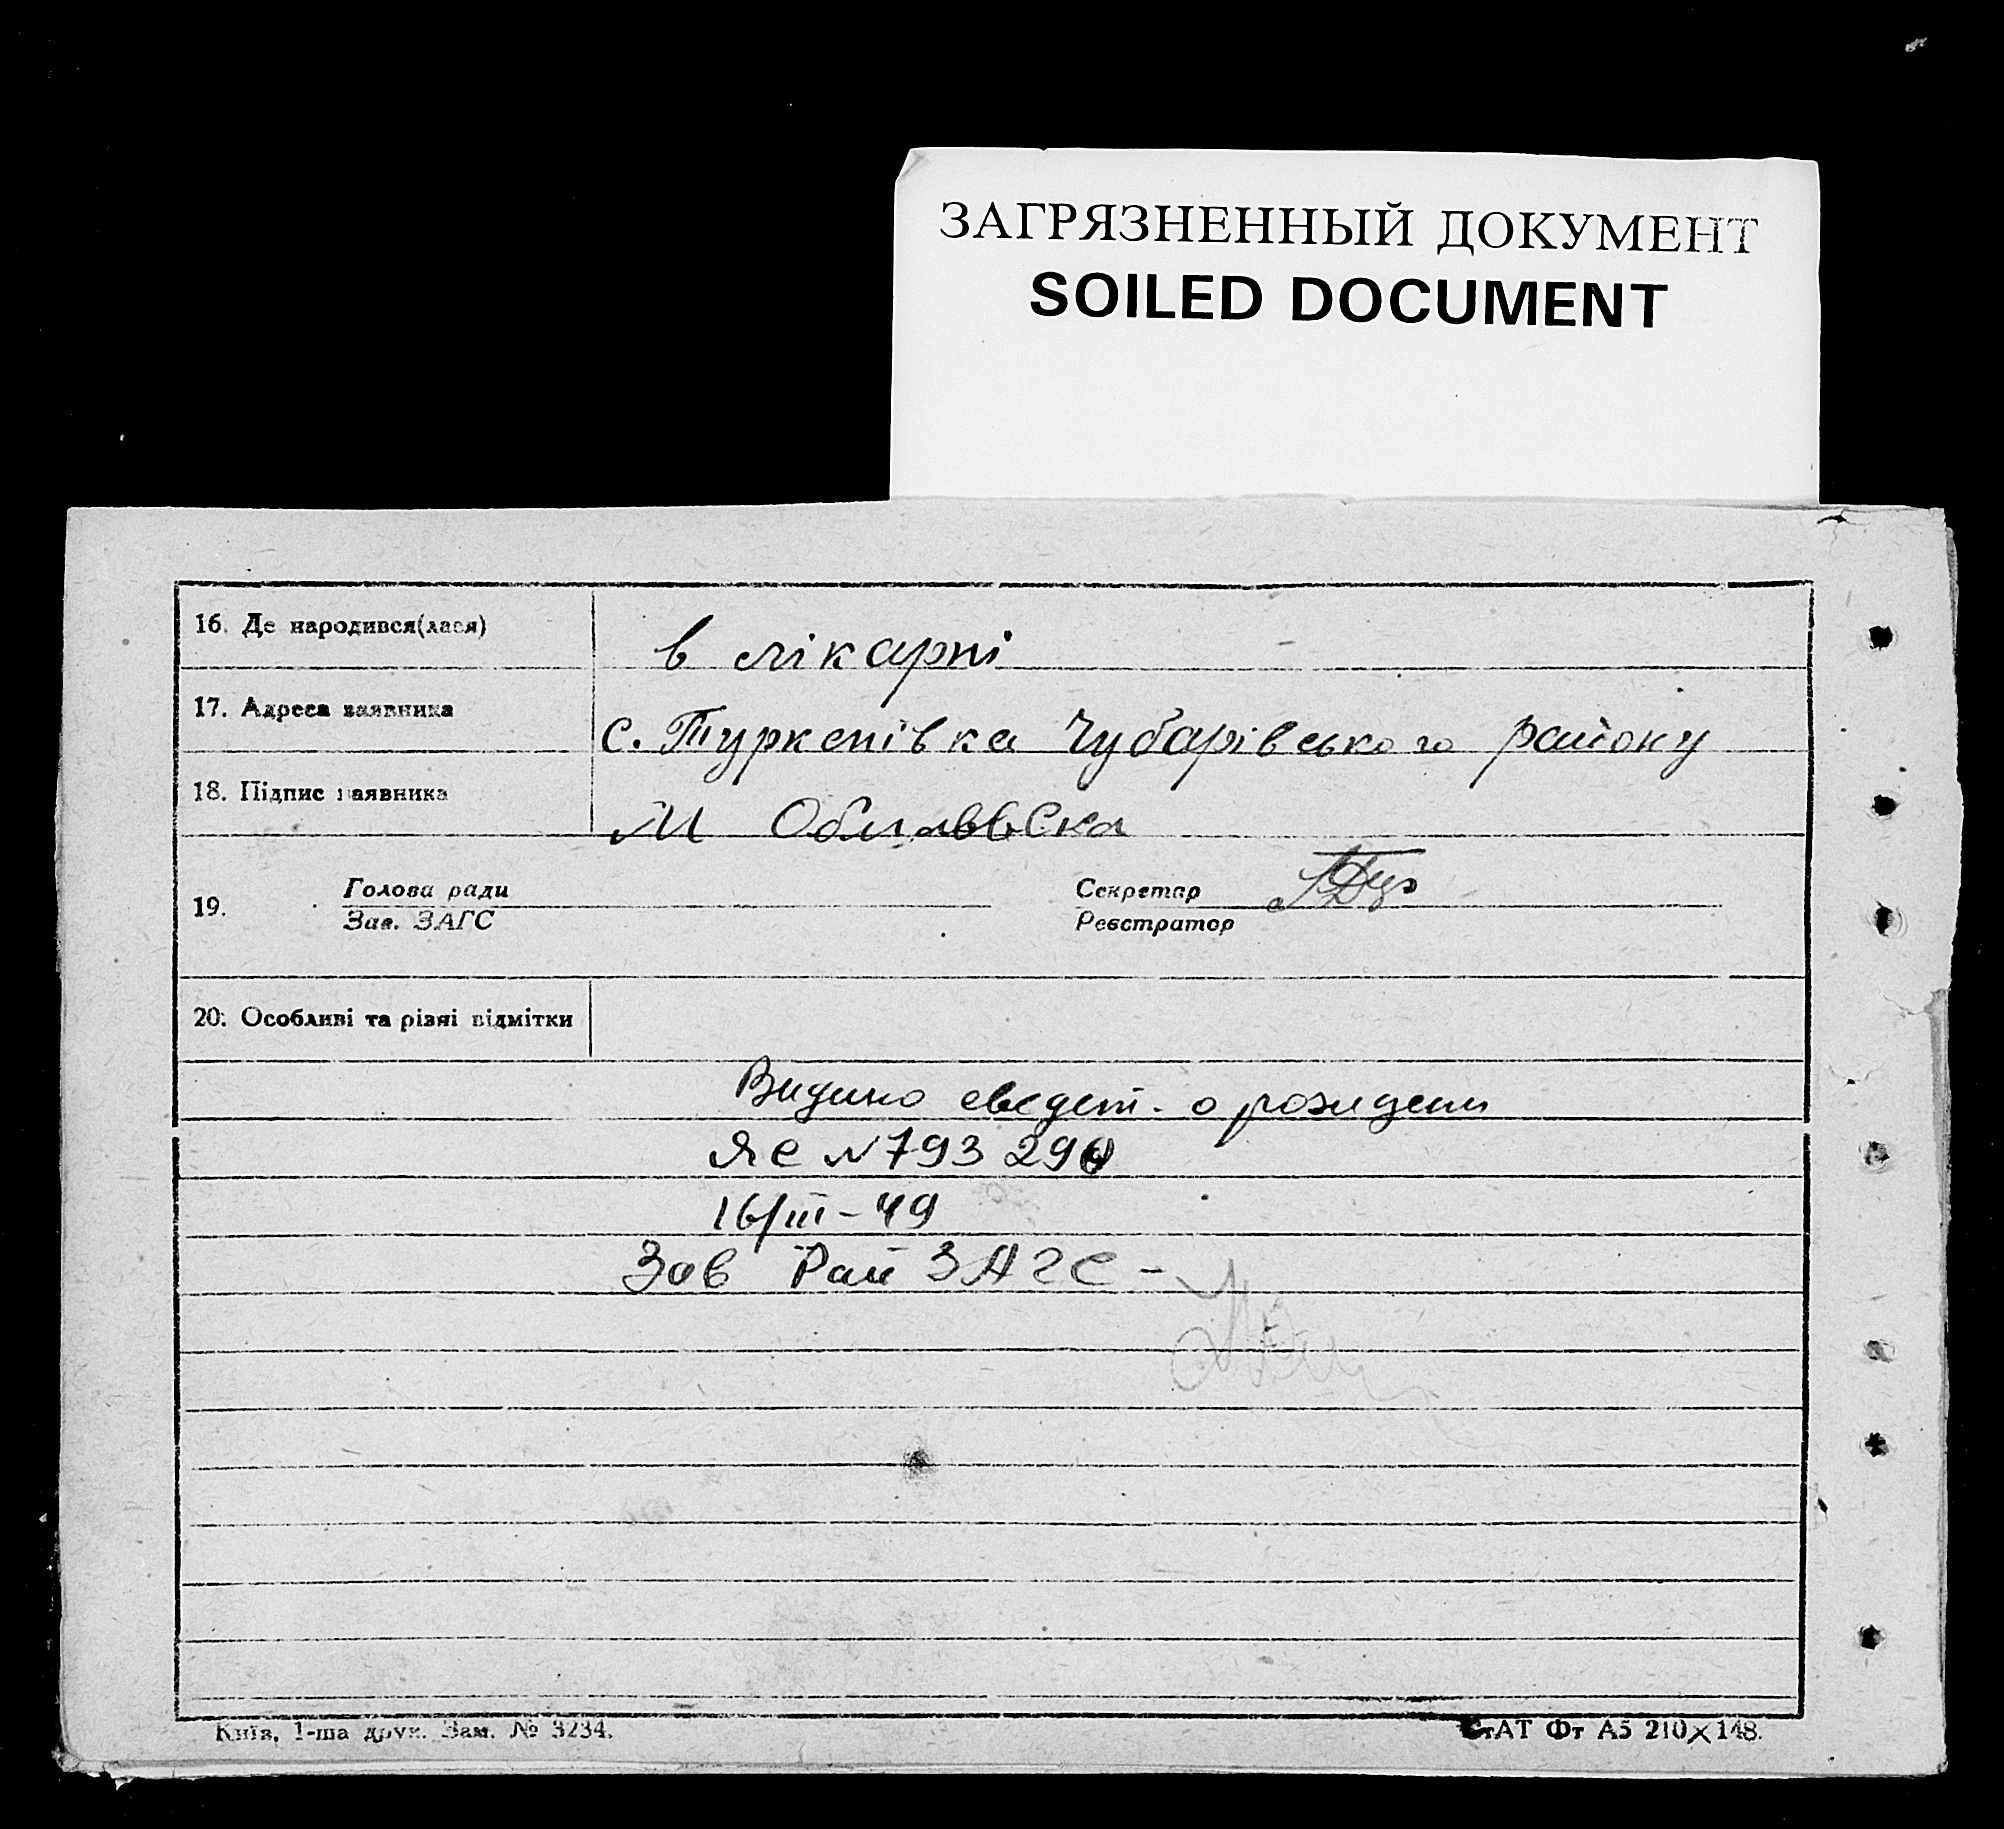 ЗАГРЯЗНЕННЫЙ ДОКУМЕНТ
SOILED DOCUMENT
16. Де народився(лася)
в лікарні
17. Адреса заявника
с. Туркенівка Чубарівського району
18. Підпис заявника
М
19.
Голова ради
Зав. ЗАГС
Секретар
Реєстратор
20. Особливі та різні відмітки
Видано сведет. о рождени
ЯС № 793 290
16/III-49
Зав Рай ЗАГС -
Київ, 1-ша друк. Зам. № 3234.
СтАТ Фт А5 210×148.